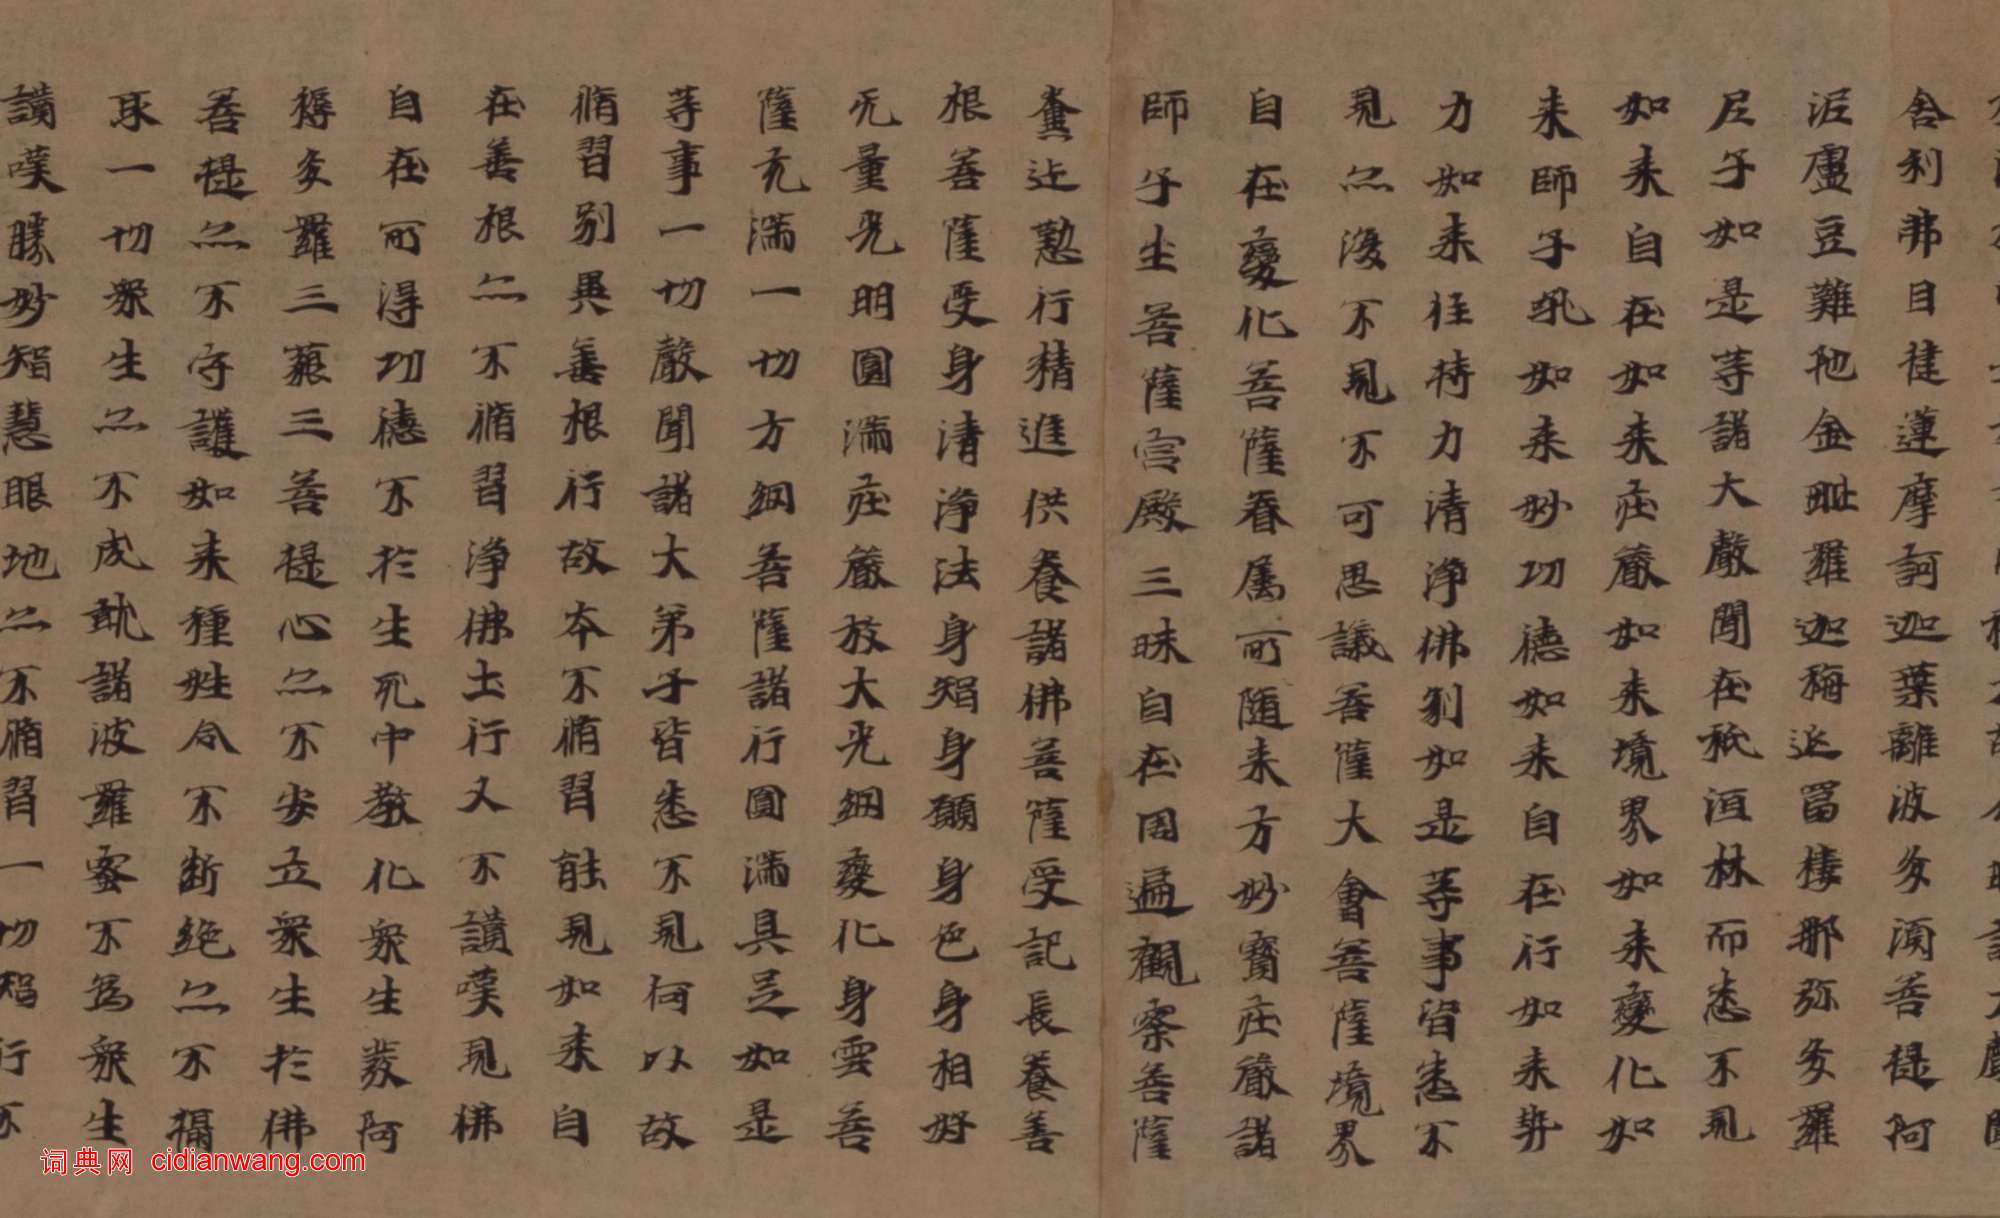 舍利弗目揵連摩訶迦葉離波多須菩提阿
泥盧豆難陁金毗羅迦旃延冨樓那弥多羅
尼子如是等諸大聲聞在祇洹林而悉不見
如来自在如来庄嚴如来境界如来變化如
来師子吼如来妙功德如来自在行如来勢
力如来住持力清淨佛刹如是等事皆悉不
見亦復不見不可思議菩薩大會菩薩境界
自在變化菩薩眷属所随来方妙寳庄嚴諸
師子坐菩薩宫殿三昧自在周遍觀察菩薩
奮迅懃行精進供養諸佛菩薩受記長養善
根菩薩受身清淨法身智身願身色身相好
无量光明圓滿庄嚴放大光網變化身雲菩
薩充滿一切方網菩薩諸行圓滿具足如是
等事一切聲聞諸大弟子皆悉不見何以故
脩習别異善根行故本不脩習能見如来自
在善根亦不脩習淨佛土行又不讃嘆見佛
自在所得功德不於生死中教化衆生發阿
耨多羅三藐三菩提心亦不安立衆生於佛
菩提亦不守護如来種姓令不断絶亦不攝
取一切衆生亦不成就諸波羅蜜不為衆生
讃嘆勝妙智慧眼地亦不脩習一切智行不
词典网 cidianwang.com